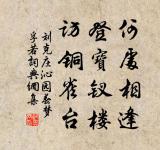 何處相逢
登寶釵樓
訪銅雀臺
刘克庄沁园春梦
孚若詞典網集